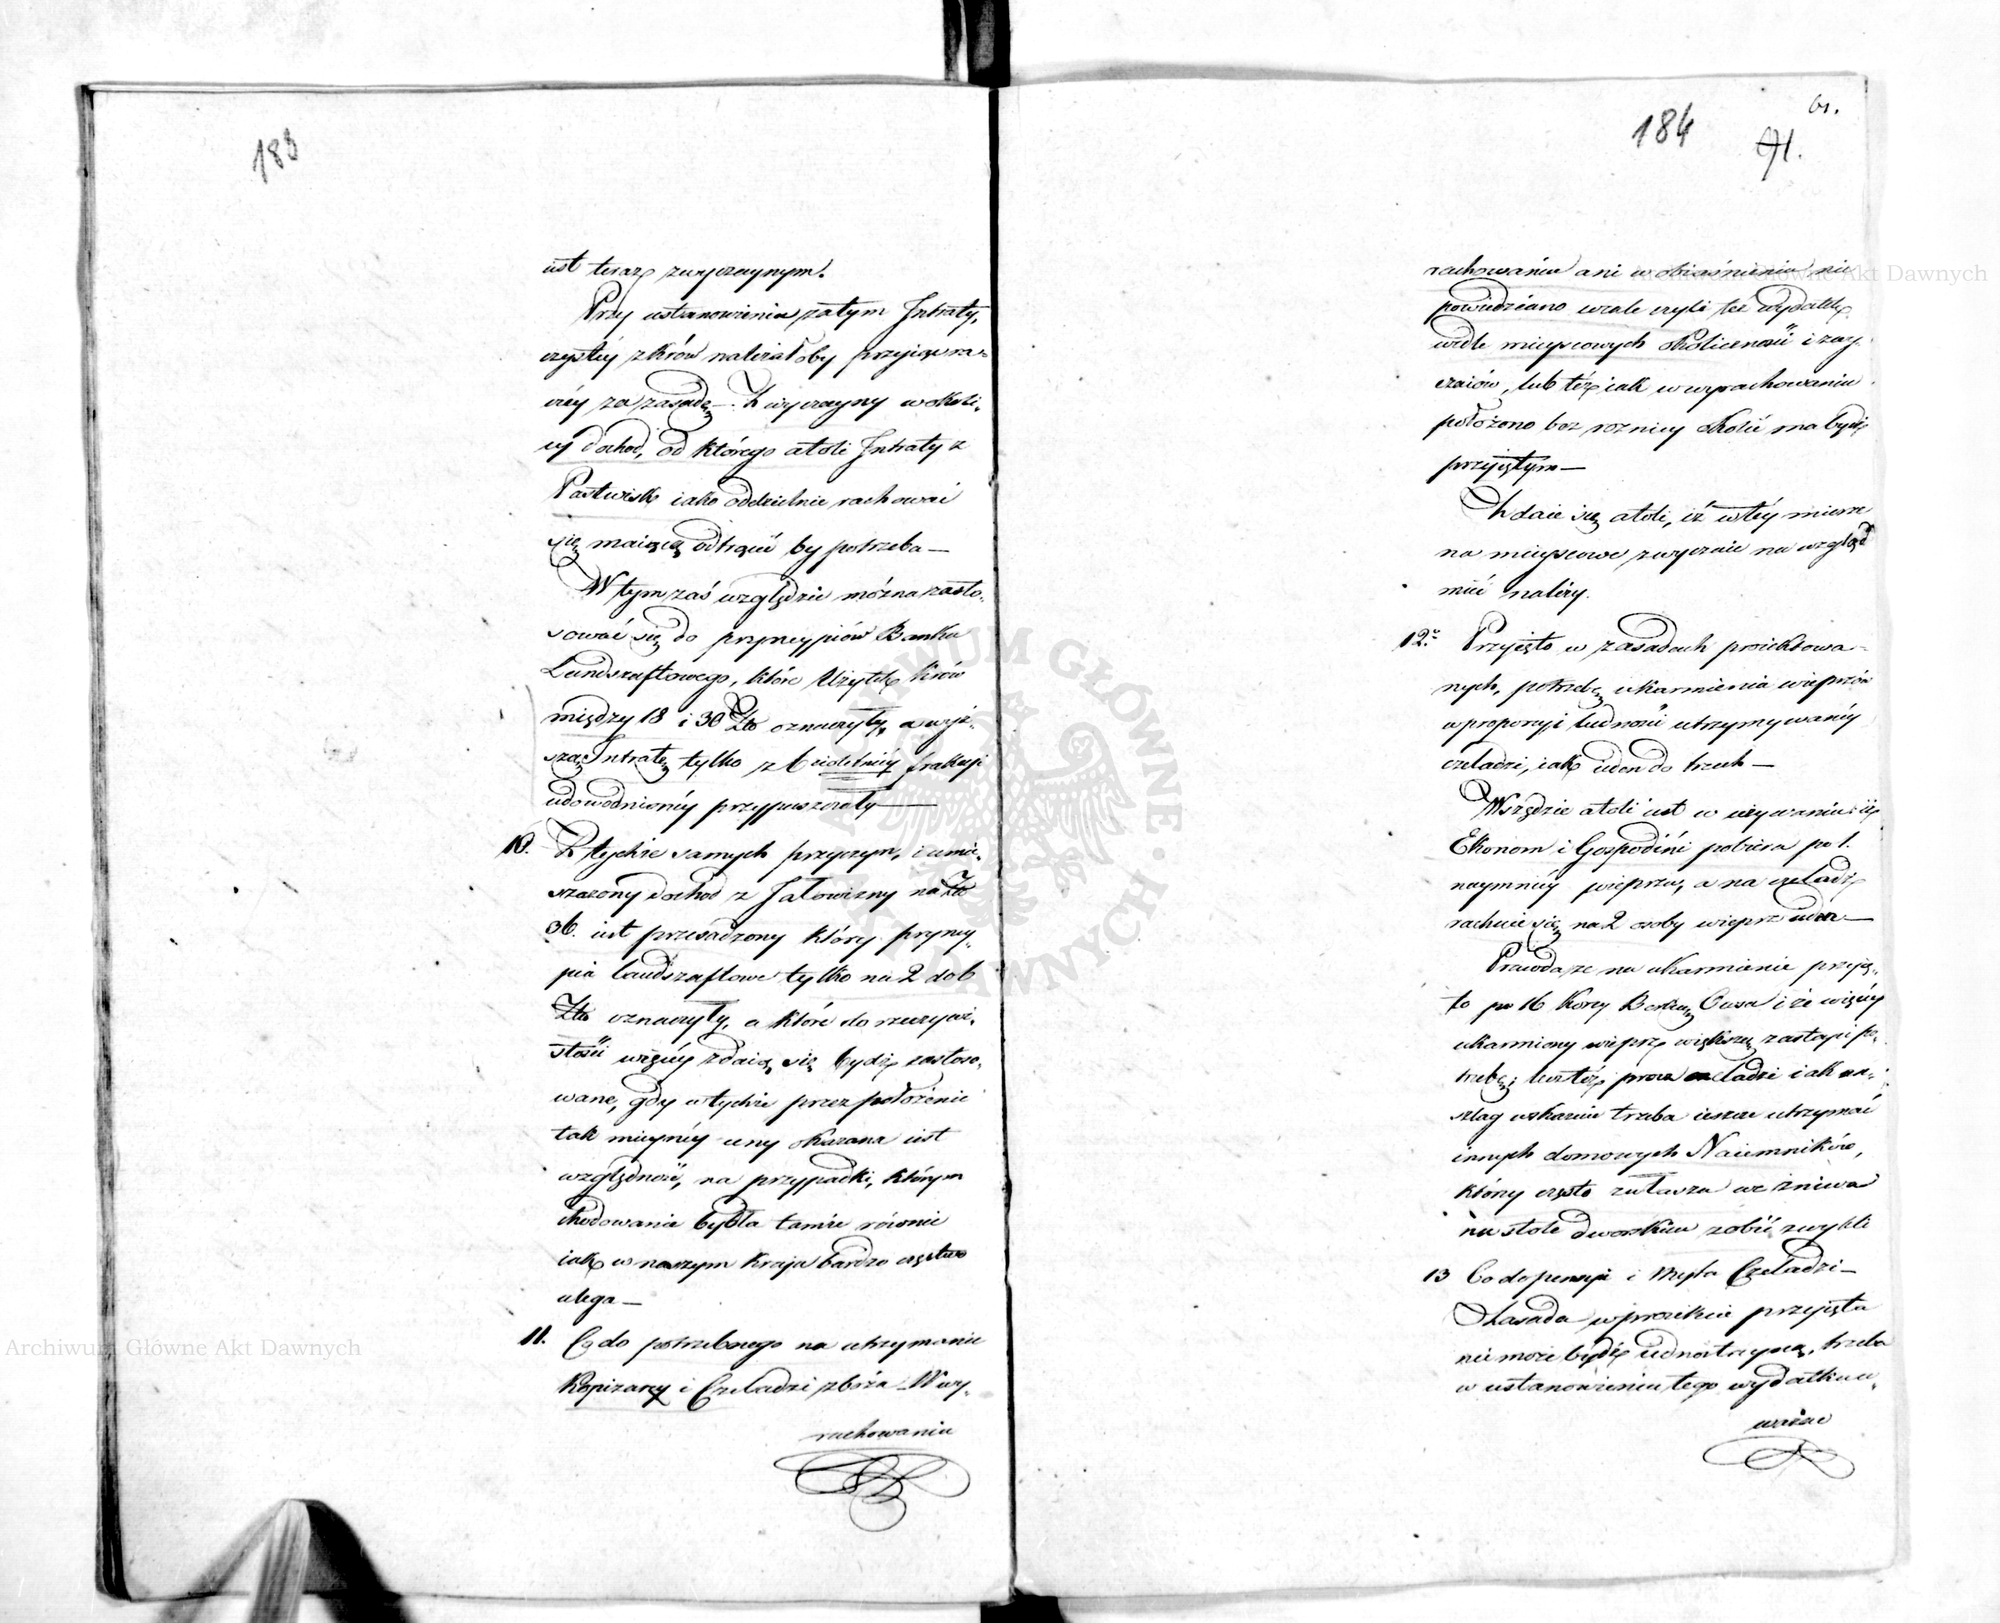 183
iest teraz zwyczaynym.
Przy ustanowieniu zatym Intraty,
czystéy z krów należałoby przyiąć ra-
czéy za zasadę — Zwyczayny w okoli-
cy dochod, od którego atoli Intraty z
Pastwisk iako oddzielnie rachować
się maiącą odtrącić by potrzeba —
W tym zaś względzie można zasto-
sować się do pryncypiów Banku
Landszaftowego, które Użytek krów
między 18 i 30 Zło oznaczyły, a wyż-
szą Intratę tylko z udowodnionéy przypuszczały —
10. Z tychże samych przyczyn, i umie-
szczony dochod z Jałowizny na Zło
36. iest przesadzony który pryncy-
pia landszaftowe tylko na 2 do 6
Zło oznaczyły, a które do rzeczywi-
stości więcéy zdaią się bydź zastoso-
wane, gdy w tychże przez położenie
tak miernéy ceny okazana iest
względność, na przypadki, którym
chodowanie bydła tamże równie
iak w naszym Kraju bardzo często
ulega —
11. Co do potrzebnego na utrzymanie
Kopiarzy i Czeladzi zboża W wy-
rachowaniu
61.
184
91.
rachowaniu ani w obiaśnieniu nie
powiedziano wcale czyli te wydatki
wedle mieyscowych Okoliczności i zwy-
czaiów, lub też iak w wyrachowaniu
położono bez roznicy okolic ma bydź
przyiętym —
Zdaie się atoli, iż w téy mierze
na mieyscowe zwyczaie na wzgląd
mieć należy.
12. Przyięto w zasadach proiektowa-
nych, potrzebę ukarmienia wieprzów
w proporcyi ludności utrzymywanéy
czeladzi, iak ieden do trzech —
Wszędzie atoli iest w używaniu iż
Ekonom i Gospodini pobiera po 1.
naymniéy wieprzu, a na czeladź
rachuie się na 2 osoby wieprz ieden —
Prawda że na ukarmienie przyię-
to po 16 Korcy Berliną Casa i że więcéy
ukarmiony wieprz większą zastąpi po-
trzebę; lecz też prócz czeladzi iak na-
szlag wskazuie trzeba ieszcze utrzymać
innych domowych Naiemników,
który często zwłaszcza we żniwa
na stole dworskim zobić zwykli
13 Co do pensyi i Myta Czeladzi —
Zasada w proiekcie przyięta
nie może bydź iednostayną, trzeba
w ustanowieniu tego wydatku u-
ważać
Archiwum Główne Akt Dawnych
Archiwum Główne Akt Dawnych
ARCHIWUM GŁÓWNE AKT DAWNYCH